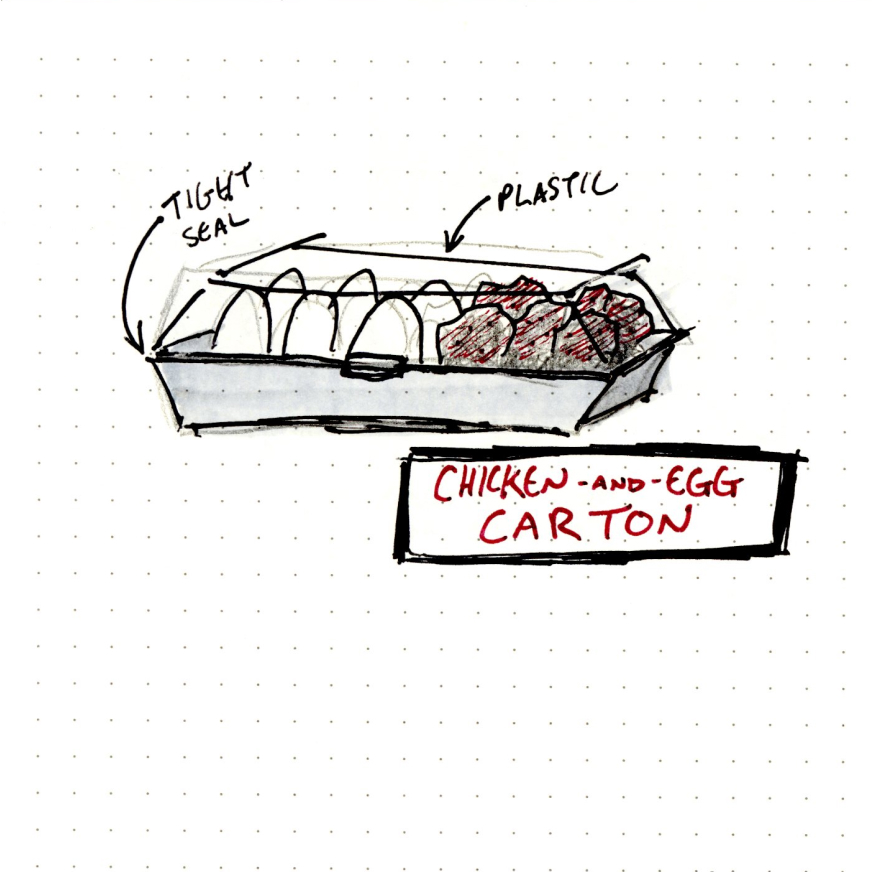 TIGHT
SEAL
PLASTIC
CHICKEN-AND-EGG
CARTON